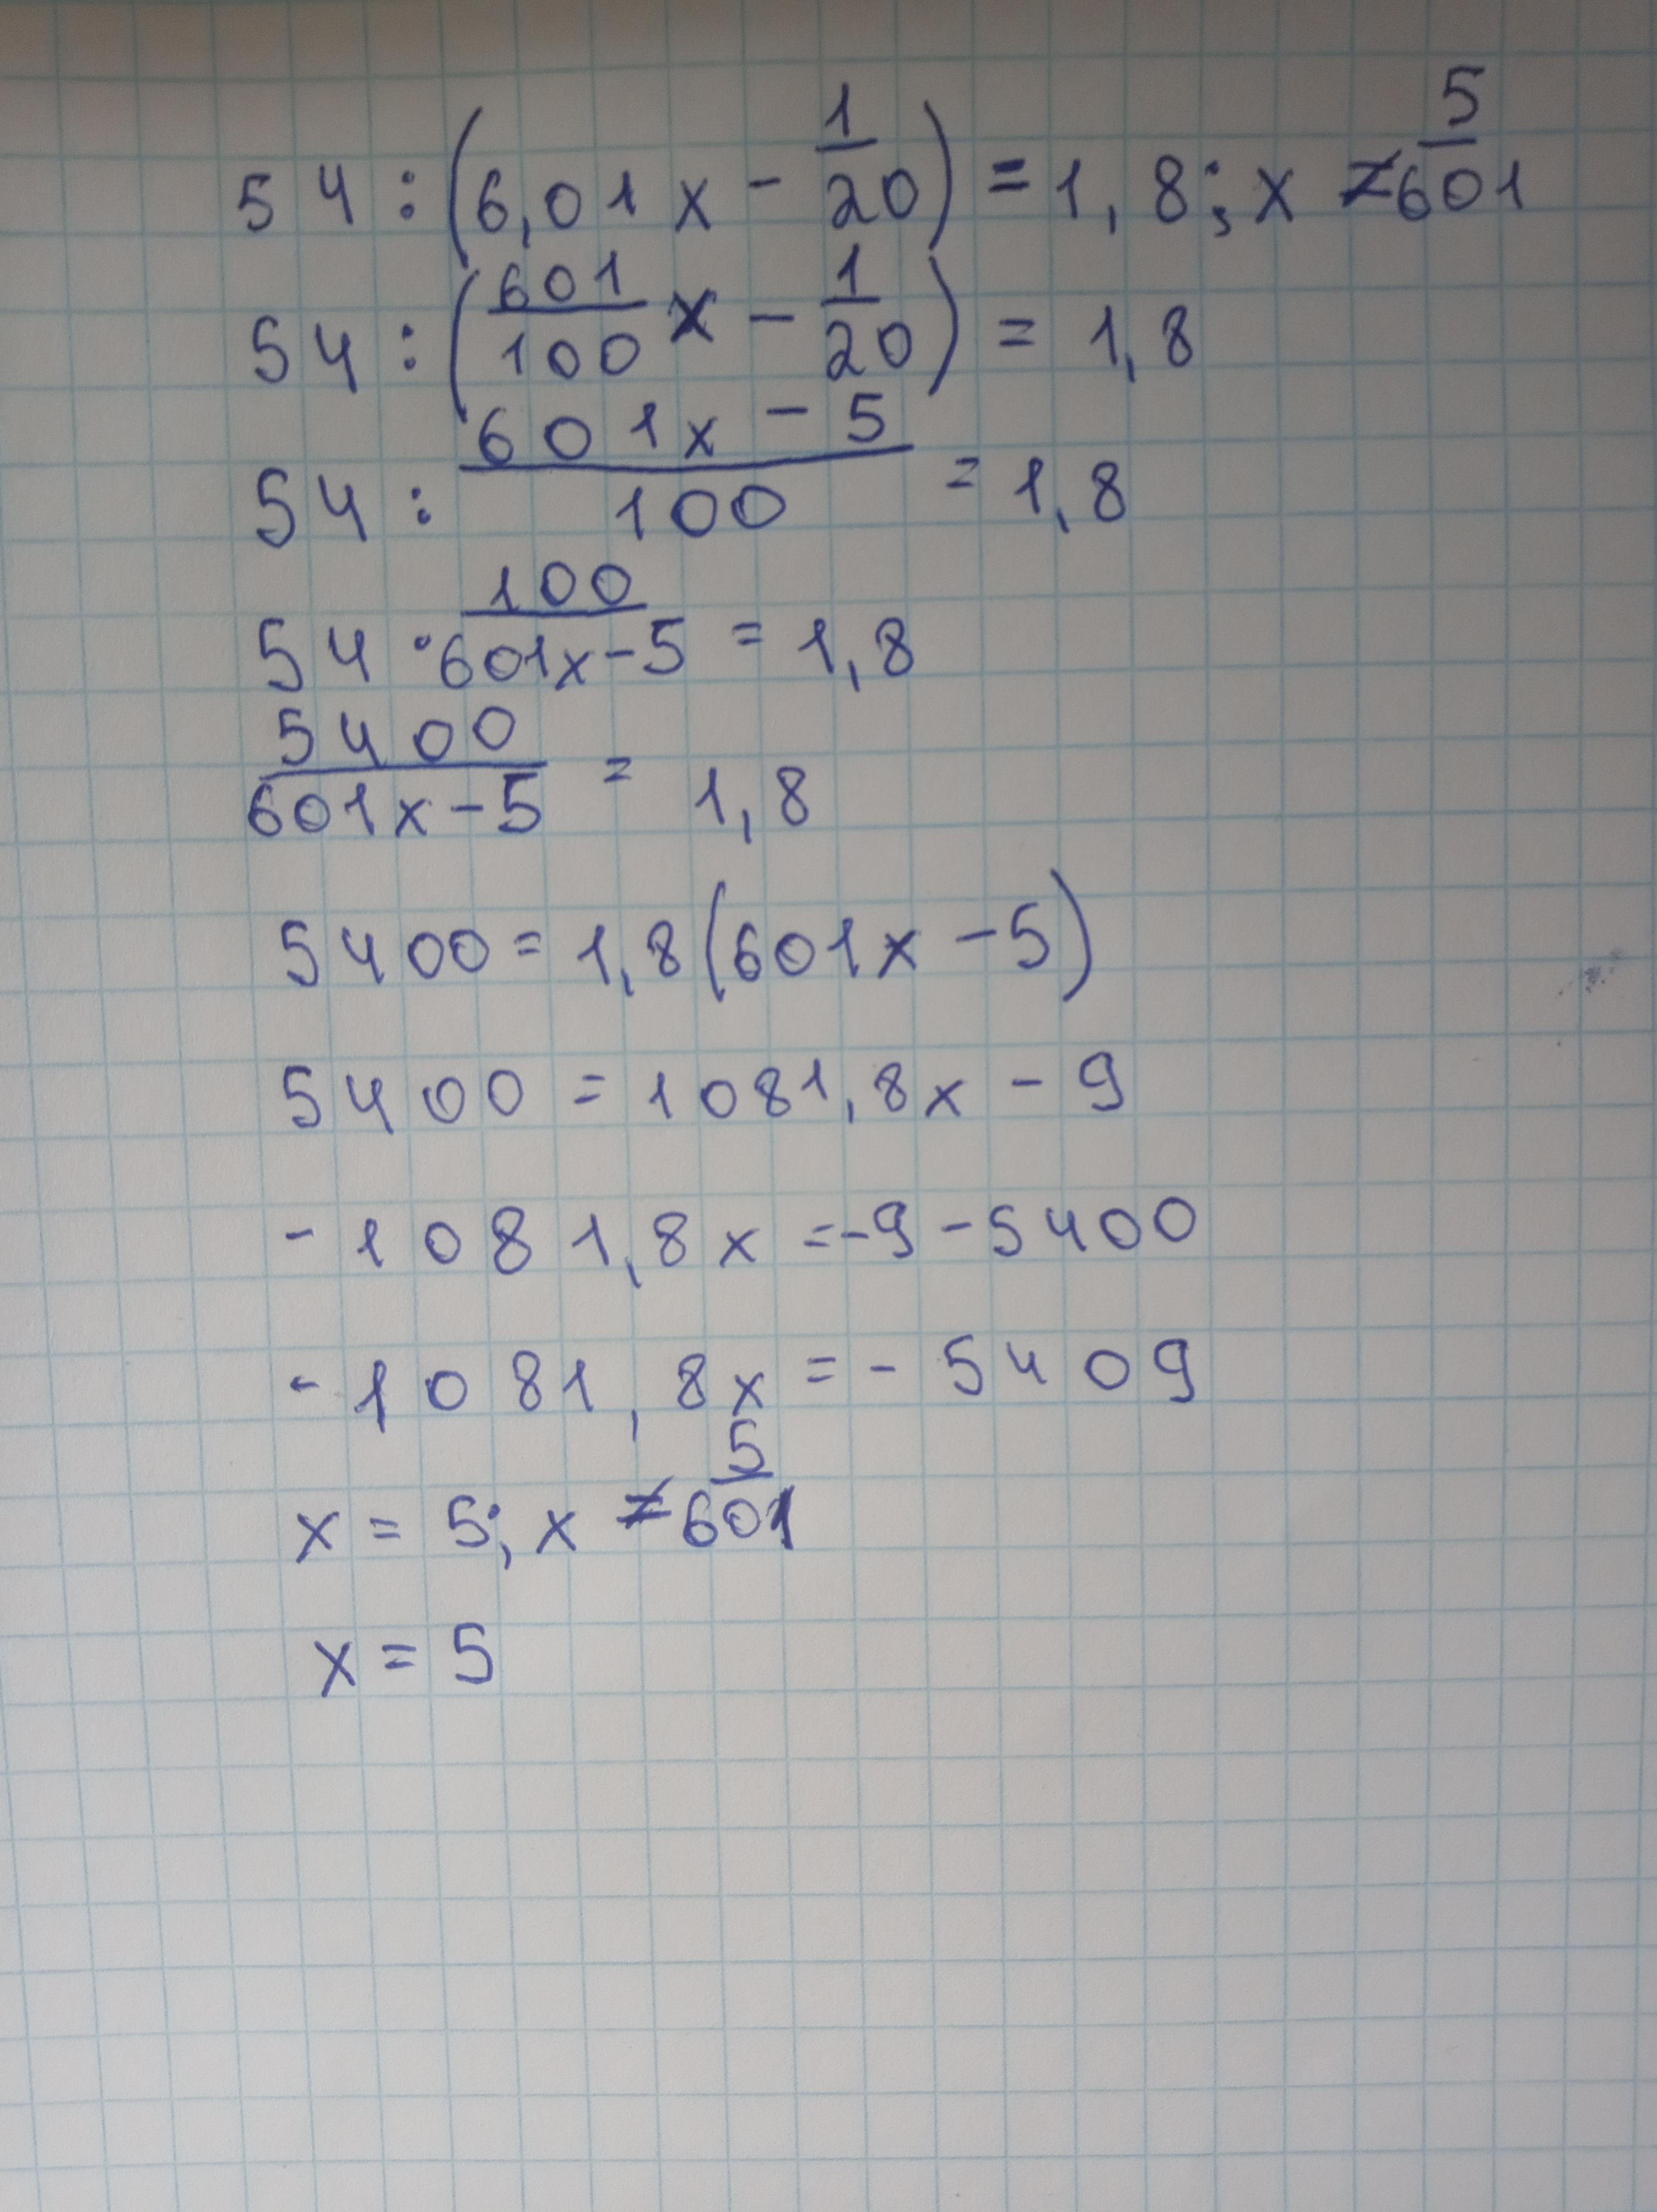 54 : (6,01x - 1/20) = 1,8; x ≠ 5/601
54 : (601/100 x - 1/20) = 1,8
54 : (601x - 5)/100 = 1,8
54 · 100/(601x-5) = 1,8
5400/(601x-5) = 1,8
5400 = 1,8(601x - 5)
5400 = 1081,8x - 9
-1081,8x = -9 - 5400
-1081,8x = -5409
x = 5; x ≠ 5/601
x = 5